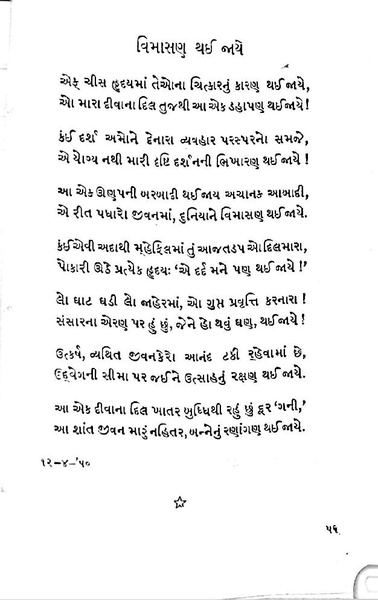 વિમાસણ થઈ જાયે
એક ચીસ હૃદયમાં તેઓના ચિત્કારનું કારણ થઈ જાયે,
ઓ મારા દીવાના દિલ તુજથી આ એક ડહાપણ થઈ જાયે!
કંઈ દર્શ અમોને દેનારા વ્યવહાર પરસ્પરનો સમજે,
એ યોગ્ય નથી મારી દૃષ્ટિ દર્શનની ભિખારણ થઈ જાયે!
આ એક ઊણપની બરબાદી થઈ જાય અચાનક આબાદી,
એ રીત પધારો જીવનમાં, દુનિયાને વિમાસણ થઈ જાયે.
કંઈ એવી અદાથી મહેફિલમાં તું આજ તડપ ઓ દિલ મારા,
પોકારી ઊઠે પ્રત્યેક હૃદયઃ ‘એ દર્દ મને પણ થઈ જાયે!’
લો ઘાટ ઘડી લો જાહેરમાં, ઓ ગુપ્ત પ્રવૃત્તિ કરનારા!
સંસારના એરણ પર હું છું, જેને હો થવું ઘણ, થઈ જાયે!
ઉત્કર્ષ, વ્યથિત જીવનકેરો આનંદ ટકી રહેવામાં છે,
ઉદ્વેગની સીમા પર જઈને ઉત્સાહનું રક્ષણ થઈ જાયે.
આ એક દીવાના દિલ ખાતર બુધ્ધિથી રહું છું દૂર ‘ગની,’
આ શાંત જીવન મારું નહિતર, બન્નેનું રણાંગણ થઈ જાયે.
૧૨-૪-’૫૦
૫૬